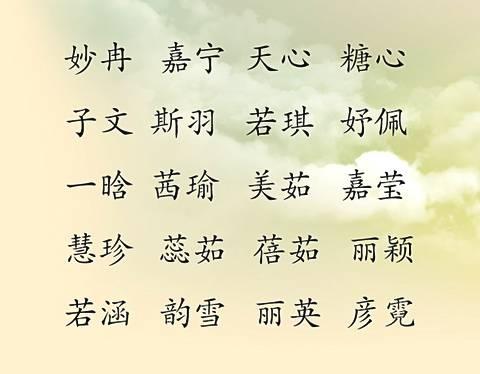 妙冉 嘉宁 天心 糖心
子文 斯羽 若琪 妤佩
一晗 茜瑜 美茹 嘉莹
慧珍 蕊茹 蓓茹 丽颖
若涵 韵雪 丽英 彦霓